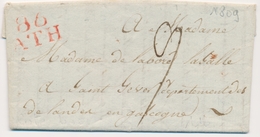 1809
86
ATH
A Madame
Madame de
a Saint Sever département des
de landes en gascogne